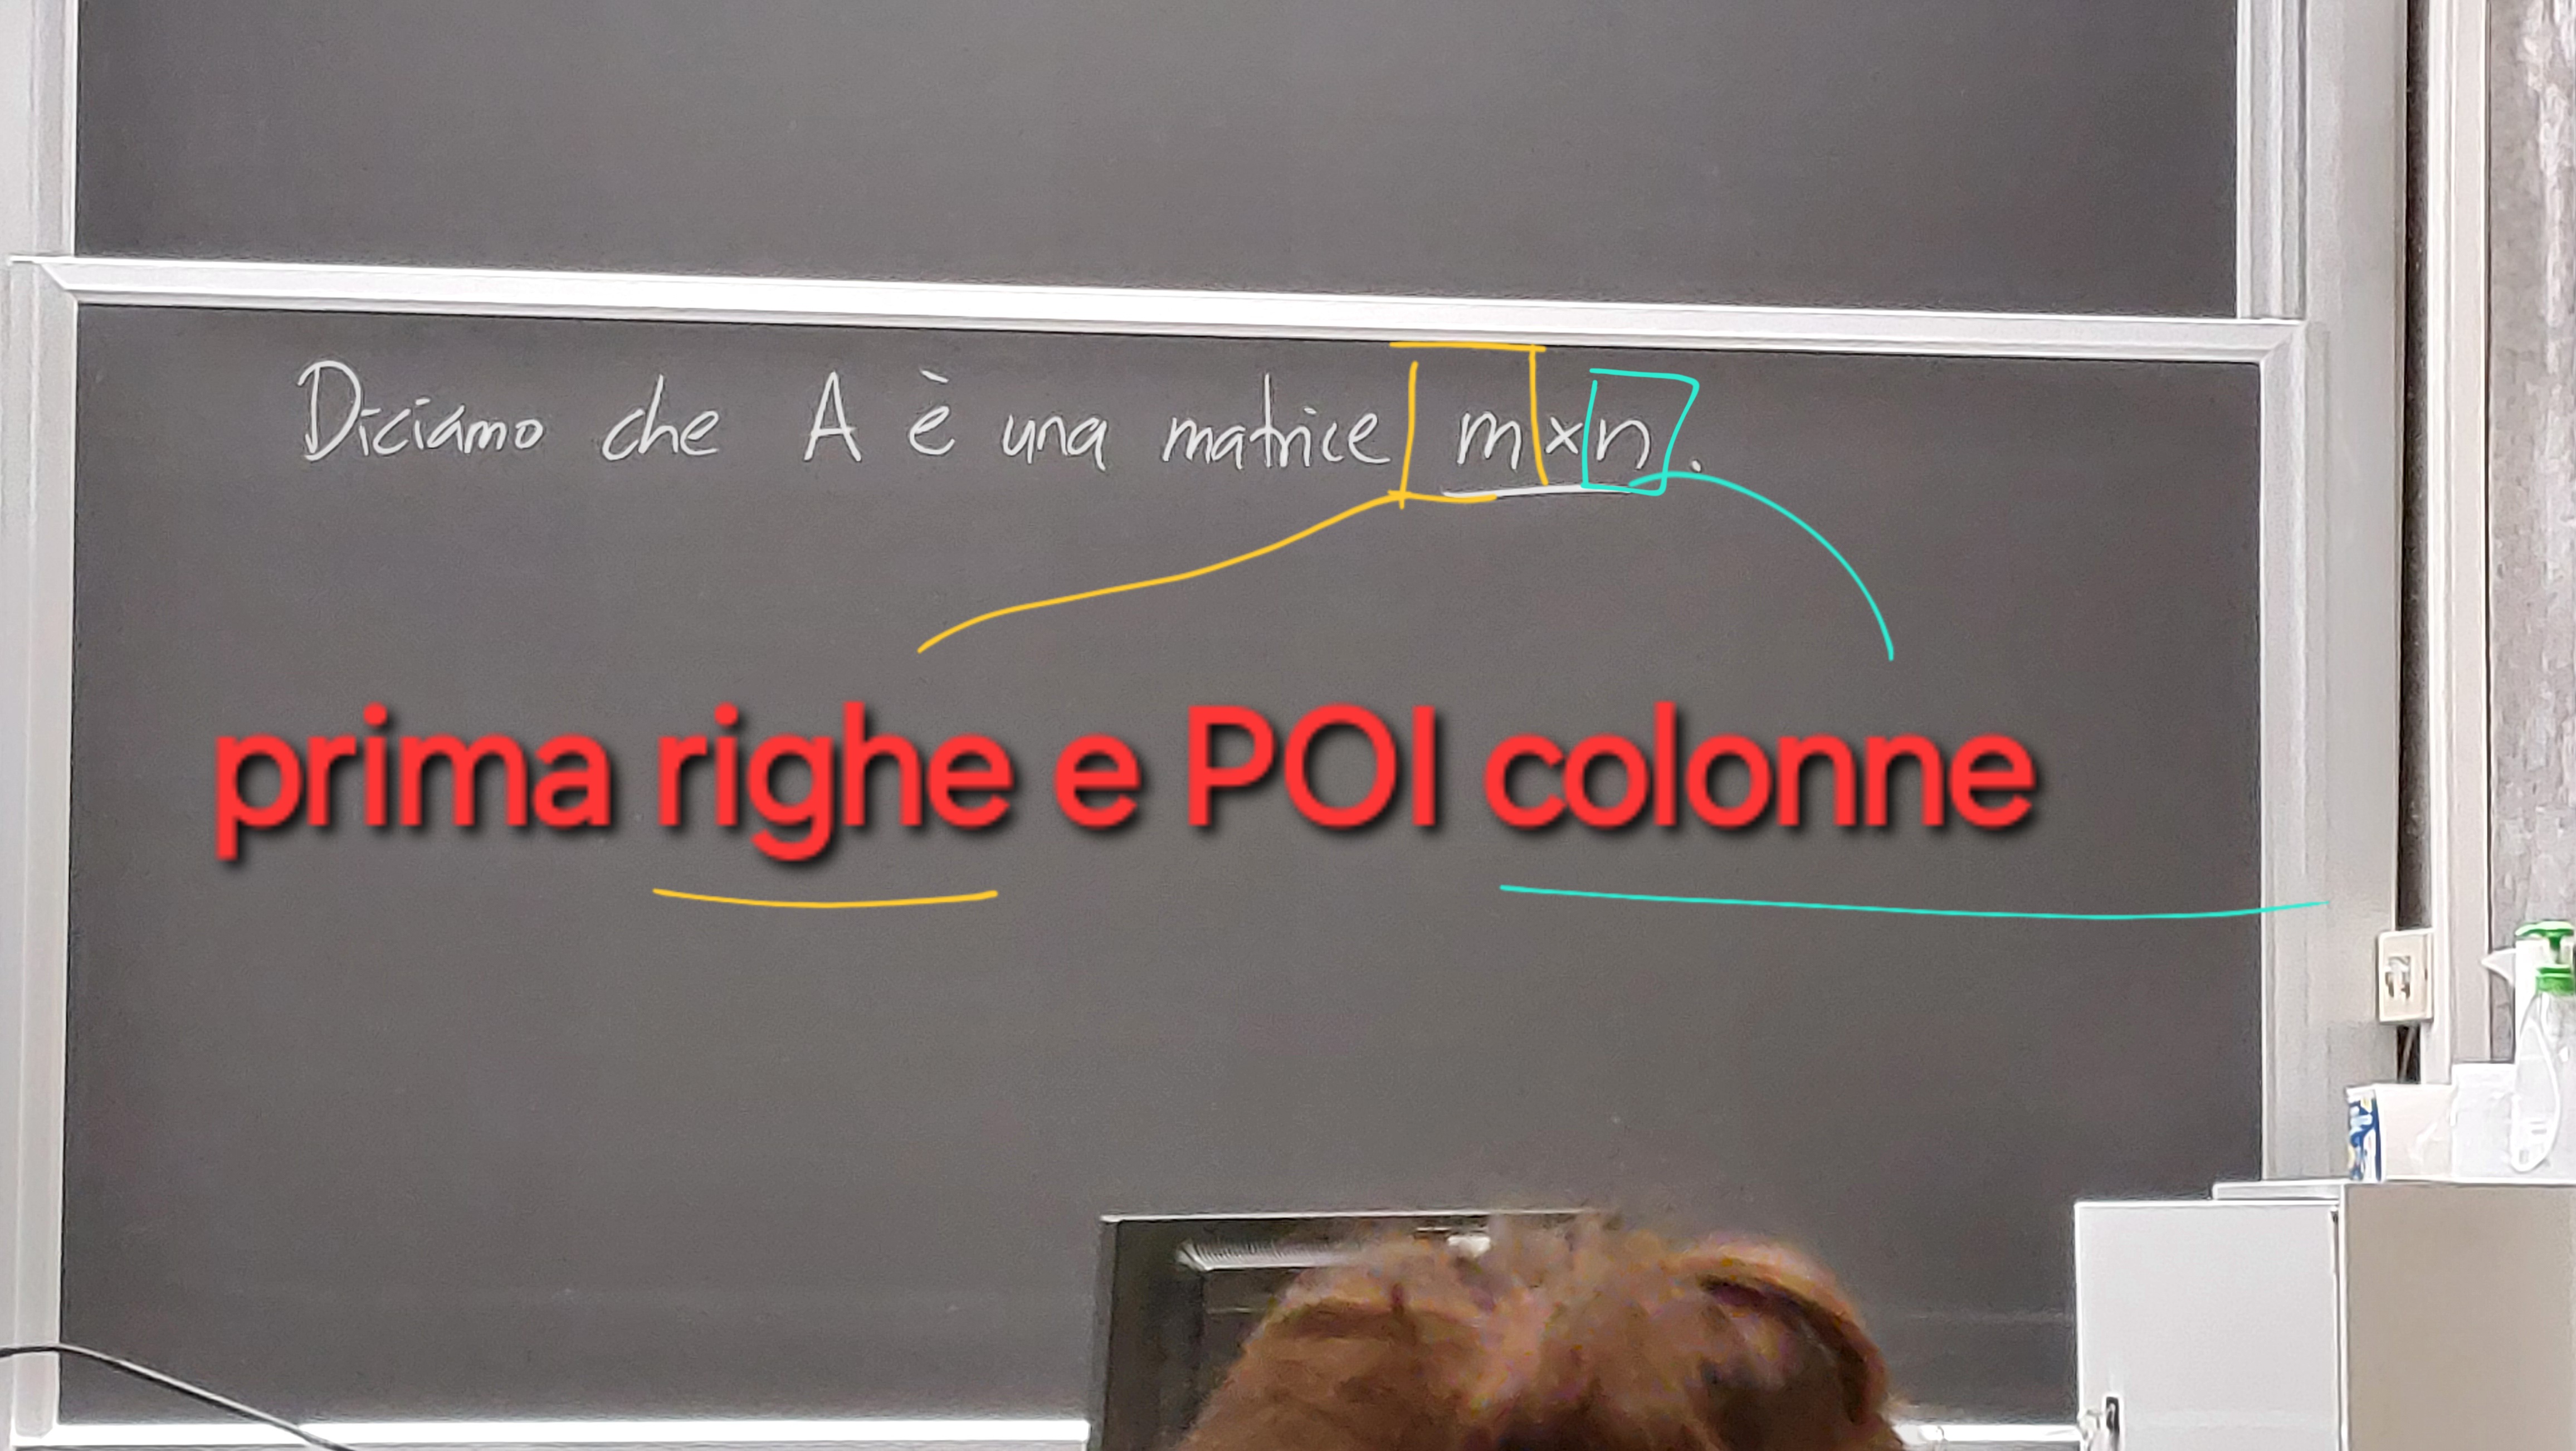 Diciamo che A è una matrice m×n.
prima righe e POI colonne